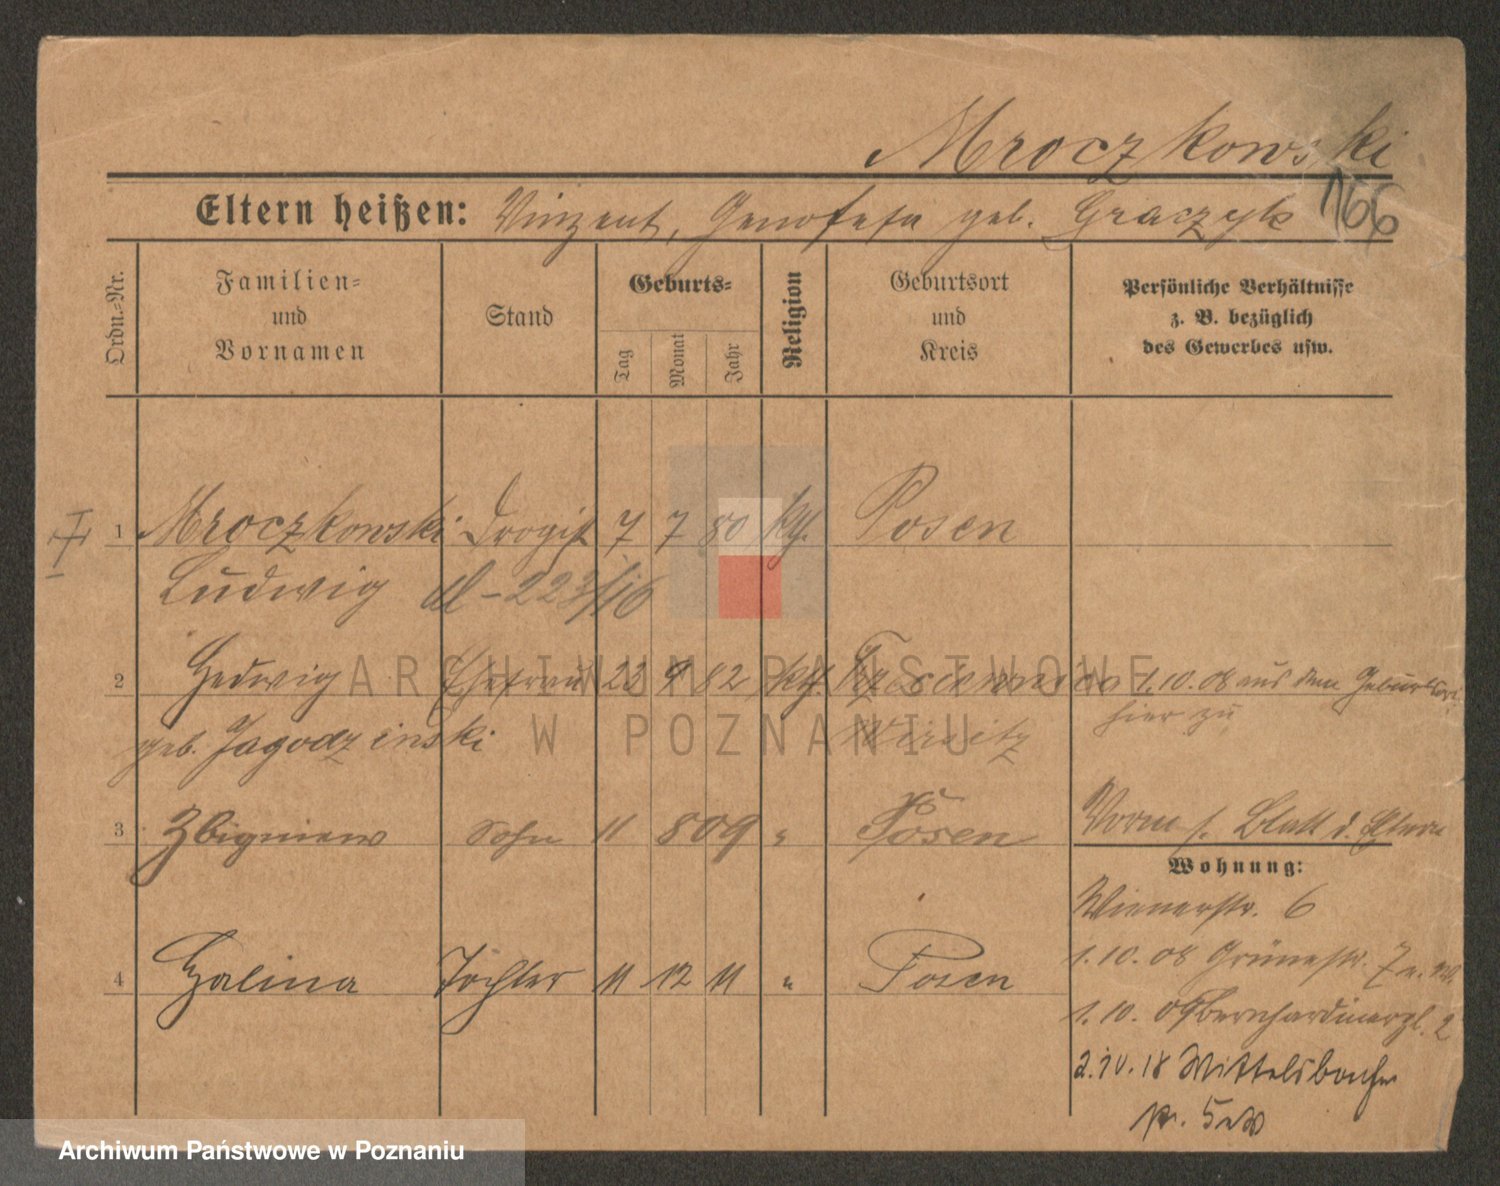 Mroczkowski
166
Eltern heißen: Vinzent, Genofefa geb. Graczyk
Ordn.-Nr.
Familien= und Vornamen
Stand
Geburts=
Tag
Monat
Jahr
Religion
Geburtsort und Kreis
Persönliche Verhältnisse
z. B. bezüglich
des Gewerbes usw.
1 Mroczkowski Drogist 7 7 80 kth. Posen
Ludwig 223/16
2 Hedwig Ehefrau 23 9 82 kth. 1.10.08 aus dem Geburtsort
geb. Jagodzinski Wirsitz hier zu
3 Zbigniew Sohn 11 8 09 " Posen Blatt d. Eltern
Wohnung:
Wienerstr. 6
4 Halina Tochter 11 12 11 " Posen
1.10.08 Grünestr. 7
1.10.09 Bernhardinerpl. 2
2.IV.18 Wittelsbacher
str. 5
ARCHIWUM PAŃSTWOWE
W POZNANIU
Archiwum Państwowe w Poznaniu